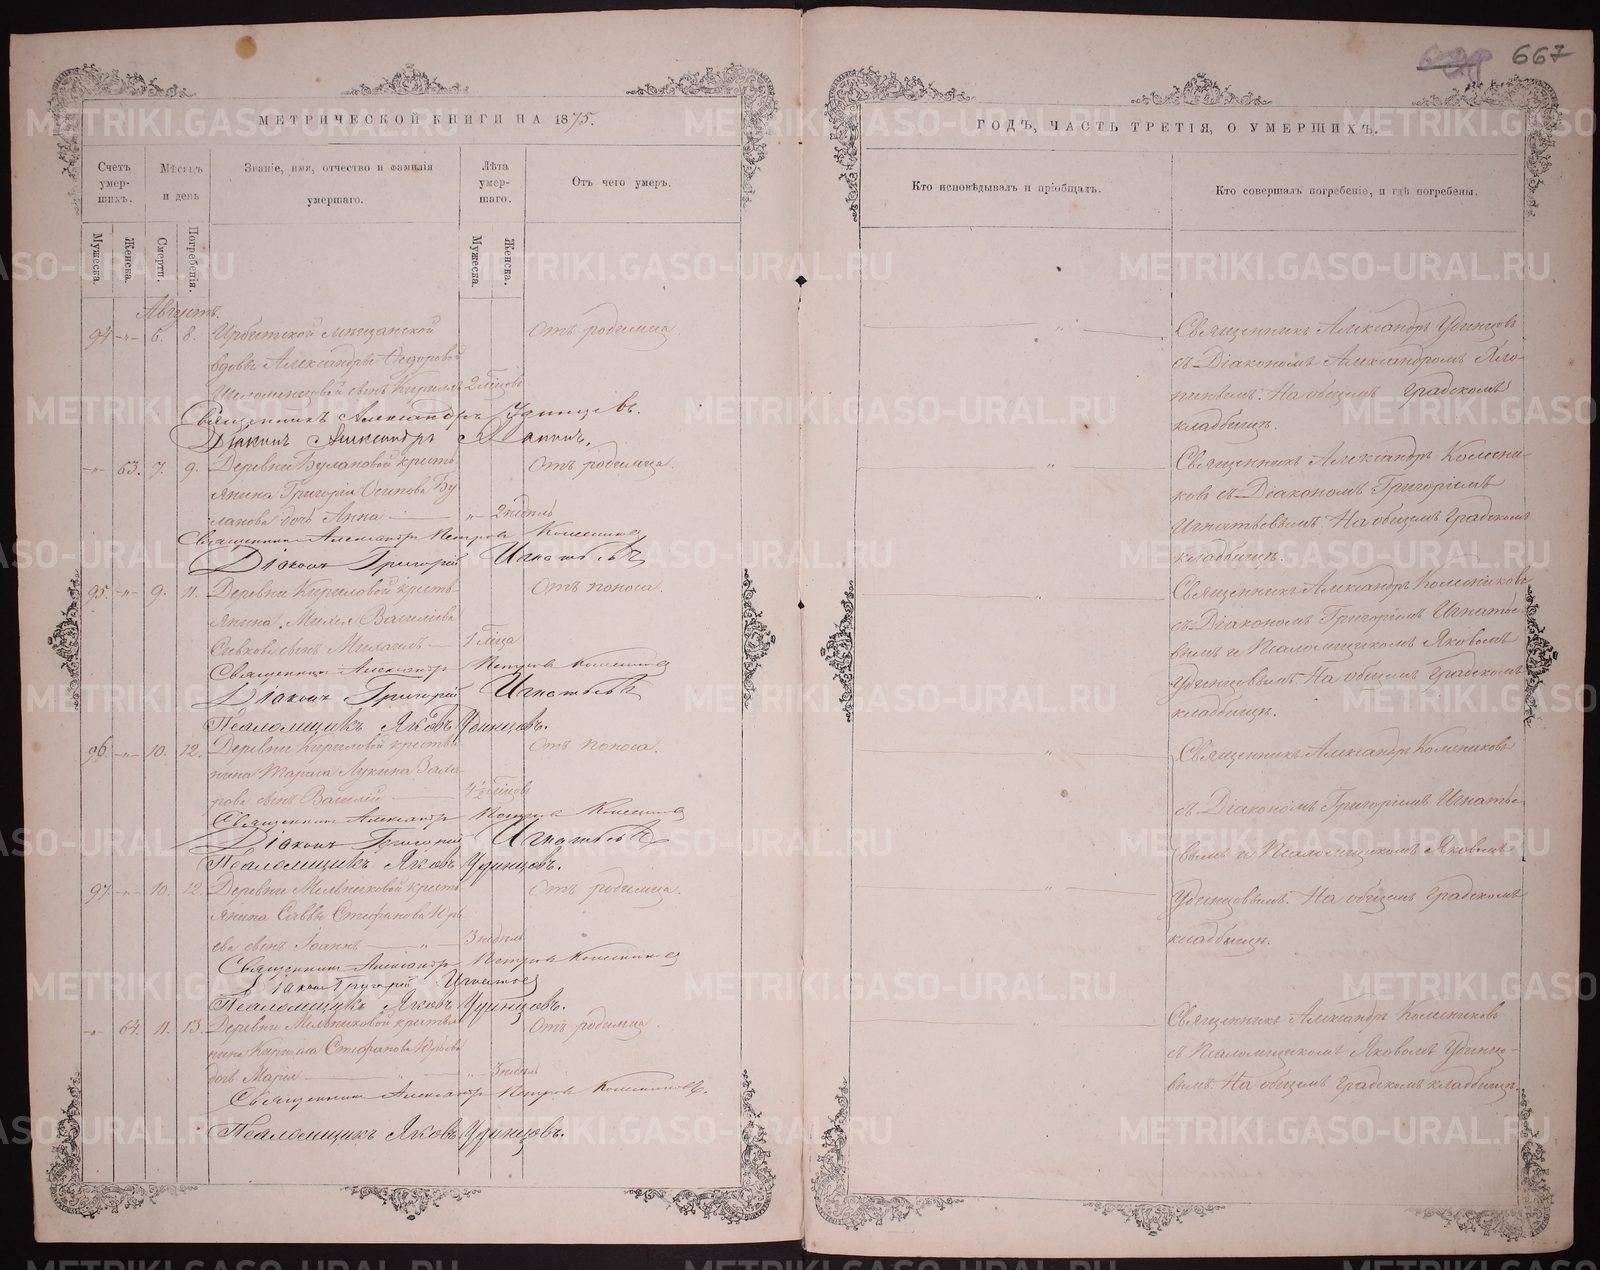 667
МЕТРИЧЕСКОЙ КНИГИ НА 1875.
Счетъ умер-шихъ.
Мѣсяцъ и день
Званіе, имя, отчество и фамилія умершаго.
Лѣта умер-шаго.
Отъ чего умеръ.
Мужеска.
Женска.
Смерти.
Погребенія.
Мужеска.
Женска.
Августъ.
94 -"- 6. 8. Ирбитской мѣщанской Отъ родимца.
вдовы Александры Ѳедоровой
сынъ Кириллъ 2 мѣсцовъ
Священникъ Александръ Удинцевъ.
Діаконъ Александръ
-"- 63. 7. 9. Деревни Булановой кресть Отъ родимца.
янина Григорія Осипова Бу
ланова дочь Анна — " — 2 недѣль
Священникъ Александръ Петровъ Колесников
Діаконъ Григорій Игнатьевъ
95. -"- 9. 11. Деревни Кириловой кресть Отъ поноса.
янина Василіева
сынъ — 1 мѣсца
Священникъ Александръ Петровъ Колесников
Діаконъ Григорій Игнатьевъ
Псаломщикъ Яковъ Удинцовъ.
96 -"- 10. 12. Деревни Кириловой крестья Отъ поноса.
нина Тараса Лукина
рова сынъ Василій — 4½ мѣсцовъ
Священникъ Александръ Петровъ Колесников
Діаконъ Григорій Игнатьевъ
Псаломщикъ Яковъ Удинцовъ.
97. -"- 10. 12. Деревни Мельниковой кресть Отъ родимца.
янина Саввы Стефанова Юрь
ева сынъ Іоаннъ — " — 3 недѣль
Священникъ Александръ Петровъ Колесников
Діаконъ Григорій Игнатьев
Псаломщикъ Яковъ Удинцовъ.
-"- 64. 11. 13. Деревни Мельниковой крестья Отъ родимца.
нина Кирилла Стефанова Юрьева
дочь Марія — " — 3 недѣль
Священникъ Александръ Петровъ Колесниковъ.
Псаломщикъ Яковъ Удинцовъ.
ГОДЪ, ЧАСТЬ ТРЕТІЯ, О УМЕРШИХЪ.
Кто исповѣдывалъ и пріобщалъ.
Кто совершалъ погребеніе, и гдѣ погребены.
Священникъ Александръ Удинцовъ
съ Діакономъ Александромъ
На общемъ Градскомъ
кладбищѣ.
Священникъ Александръ Колесни-
ковъ съ Діакономъ Григоріемъ
Игнатьевымъ. На общемъ Градскомъ
кладбищѣ.
Священникъ Александръ Колесниковъ
съ Діакономъ Григоріемъ Игнатье-
вымъ и Псаломщикомъ Яковомъ
Удинцовымъ. На общемъ Градскомъ
кладбищѣ.
Священникъ Александръ Колесниковъ
съ Діакономъ Григоріемъ Игнатье-
вымъ и Псаломщикомъ Яковомъ
Удинцовымъ. На общемъ Градскомъ
кладбищѣ.
Священникъ Александръ Колесниковъ
съ Псаломщикомъ Яковомъ Удинцо-
вымъ. На общемъ Градскомъ кладбищѣ.
METRIKI.GASO-URAL.RU